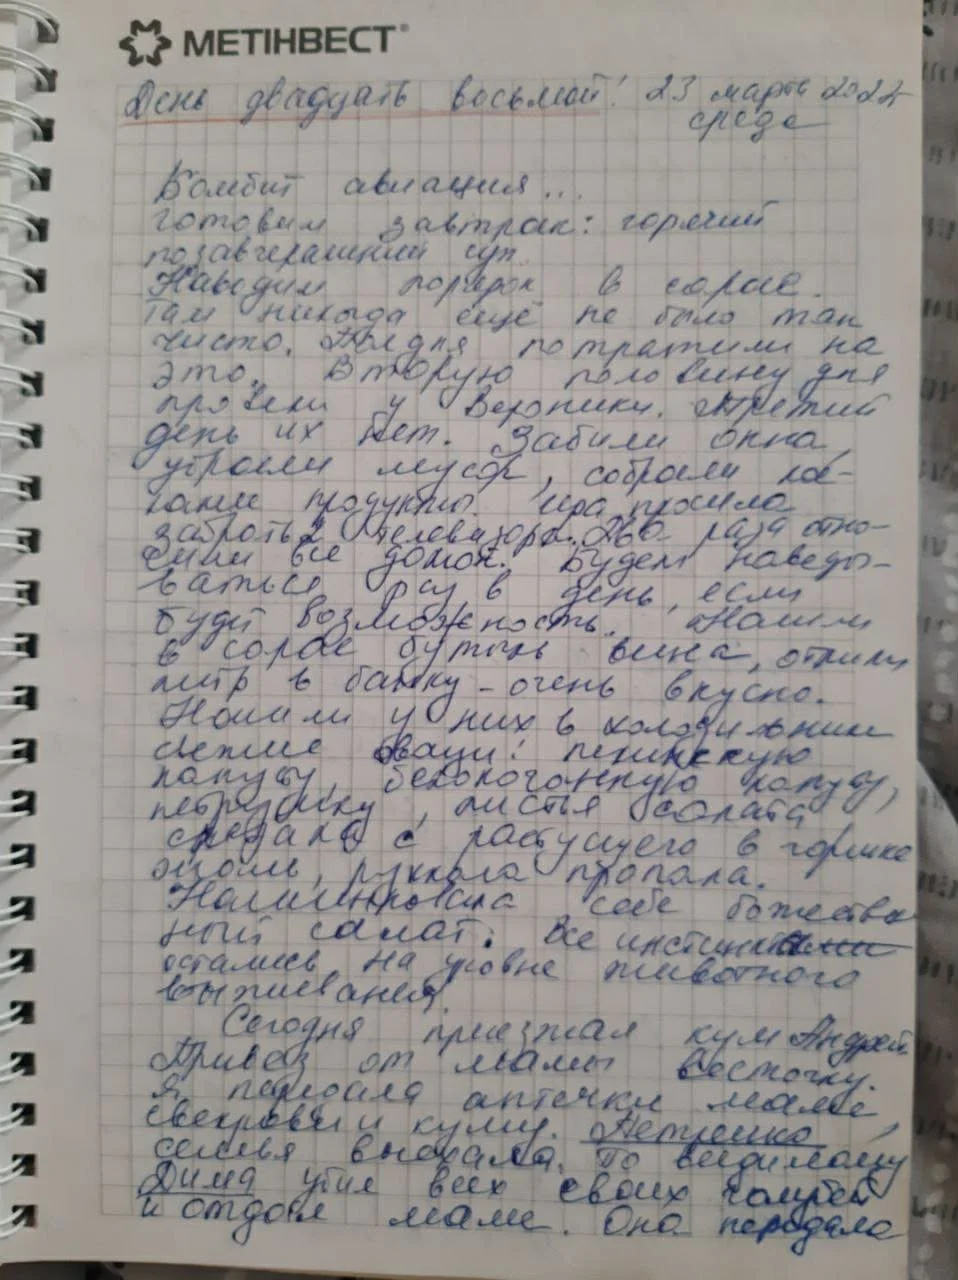 МЕТІНВЕСТ
День двадцать восьмой! 23 марта 2022
среда
Бомбит авиация...
готовим завтрак: горячий
позавчерашний суп.
Наводим порядок в сарае.
Там никогда ещё не было так
чисто. Полдня потратили на
это. Вторую половину дня
провели у Вероники. Третий
день их нет. Забили окна,
убрали мусор, собрали
продукты. Ира просила
забрать 2 телевизора. Два раза отно-
сили всё домой. Будем наведы-
ваться раз в день, если
будет возможность. Нашли
в сарае бутыль вина, отлили
литр в банку - очень вкусно.
Нашли у них в холодильнике
свежие овощи: пекинскую
капусту, белокочанную капусту,
петрушку, листья салата
срезала с растущего в горшке
жаль, руккола пропала.
себе божествен
ный салат. Все инстинкты
остались на уровне животного
выживания.
Сегодня приезжал кум Андрей
Привёз от мамы весточку.
Я передала аптечки маме,
свекрови и куму. Петренко
семья выехала. По видимому
Дима убил всех своих голубей
и отдал маме. Она передала